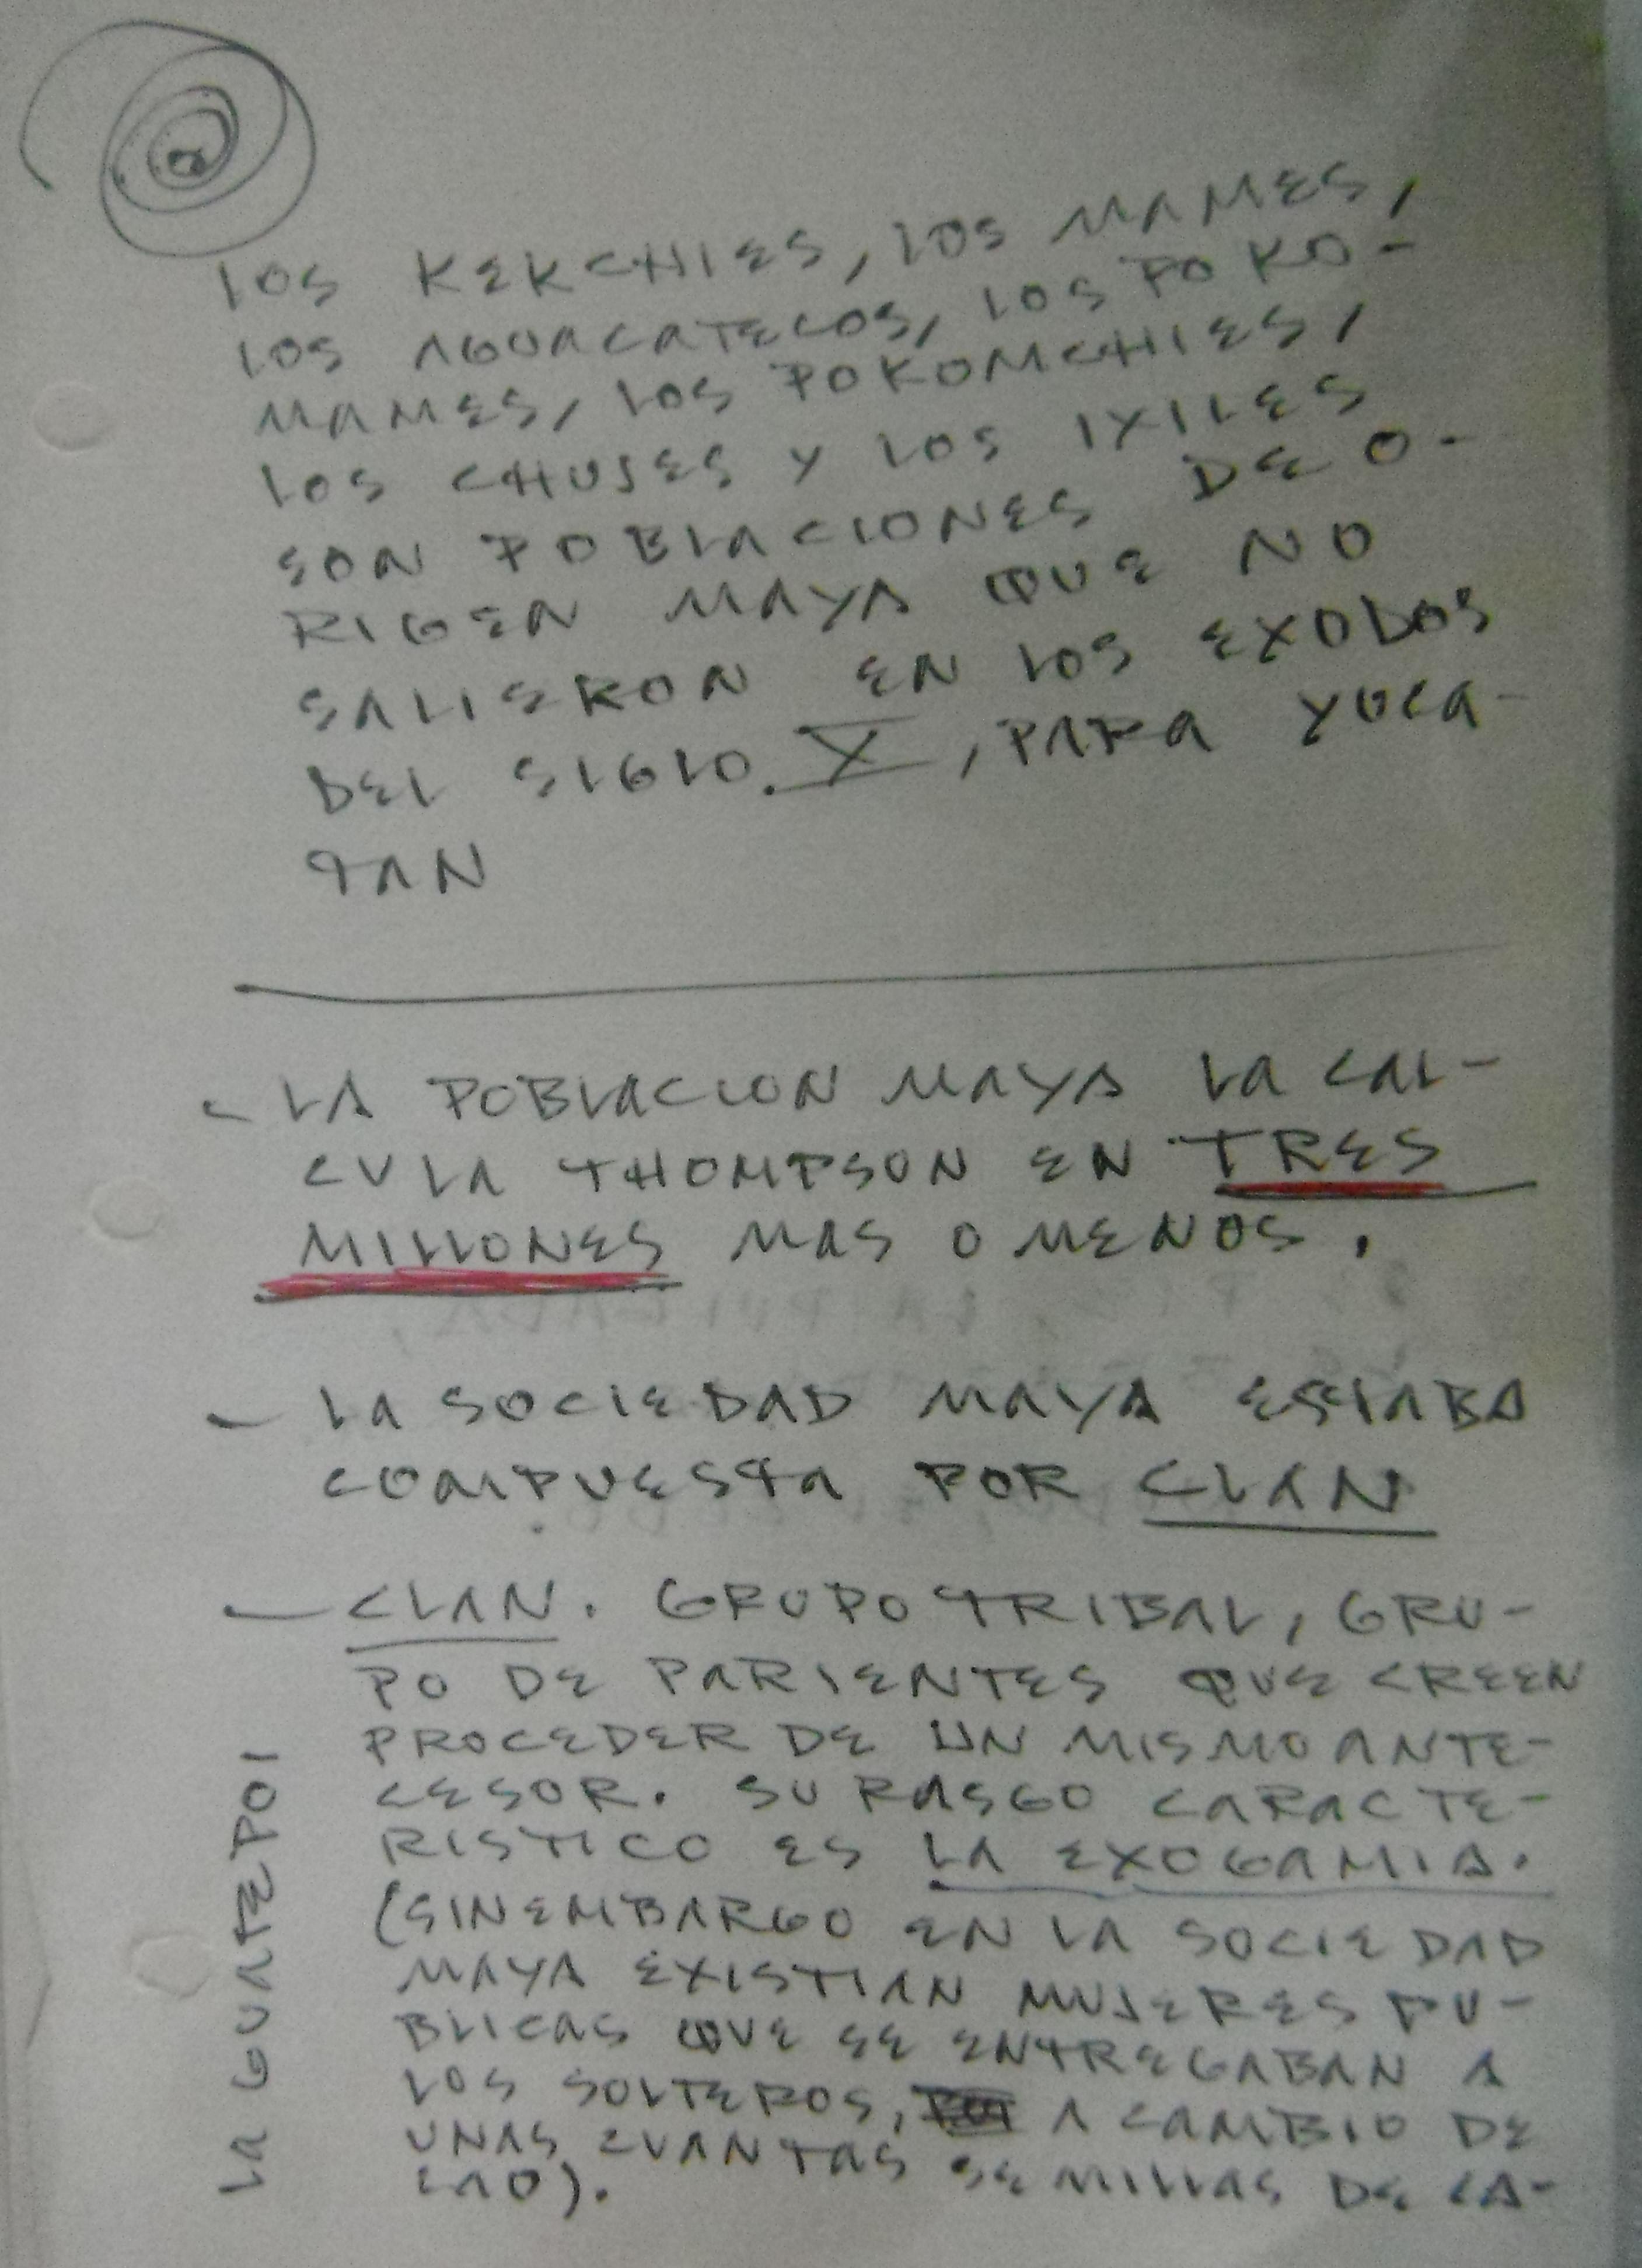 LOS KEKCHIES, LOS MAMES,
LOS AGUACATECOS, LOS POKO-
MAMES, LOS POKOMCHIES,
LOS CHUJES Y LOS IXILES
SON POBLACIONES DE O-
RIGEN MAYA QUE NO
SALIERON EN LOS EXODOS
DEL SIGLO. X, PARA YUCA-
TAN
- LA POBLACION MAYA LA CAL-
CULA THOMPSON EN TRES
MILLONES MAS O MENOS.
- LA SOCIEDAD MAYA ESTABA
COMPUESTA POR CLAN
- CLAN. GRUPO TRIBAL, GRU-
PO DE PARIENTES QUE CREEN
PROCEDER DE UN MISMO ANTE-
CESOR. SU RASGO CARACTE-
RISTICO ES LA EXOGAMIA.
(SINEMBARGO EN LA SOCIEDAD
MAYA EXISTIAN MUJERES PU-
BLICAS QUE SE ENTREGABAN A
LOS SOLTEROS, A CAMBIO DE
UNAS CUANTAS SEMILLAS DE CA-
CAO).
LA GUATEPOI